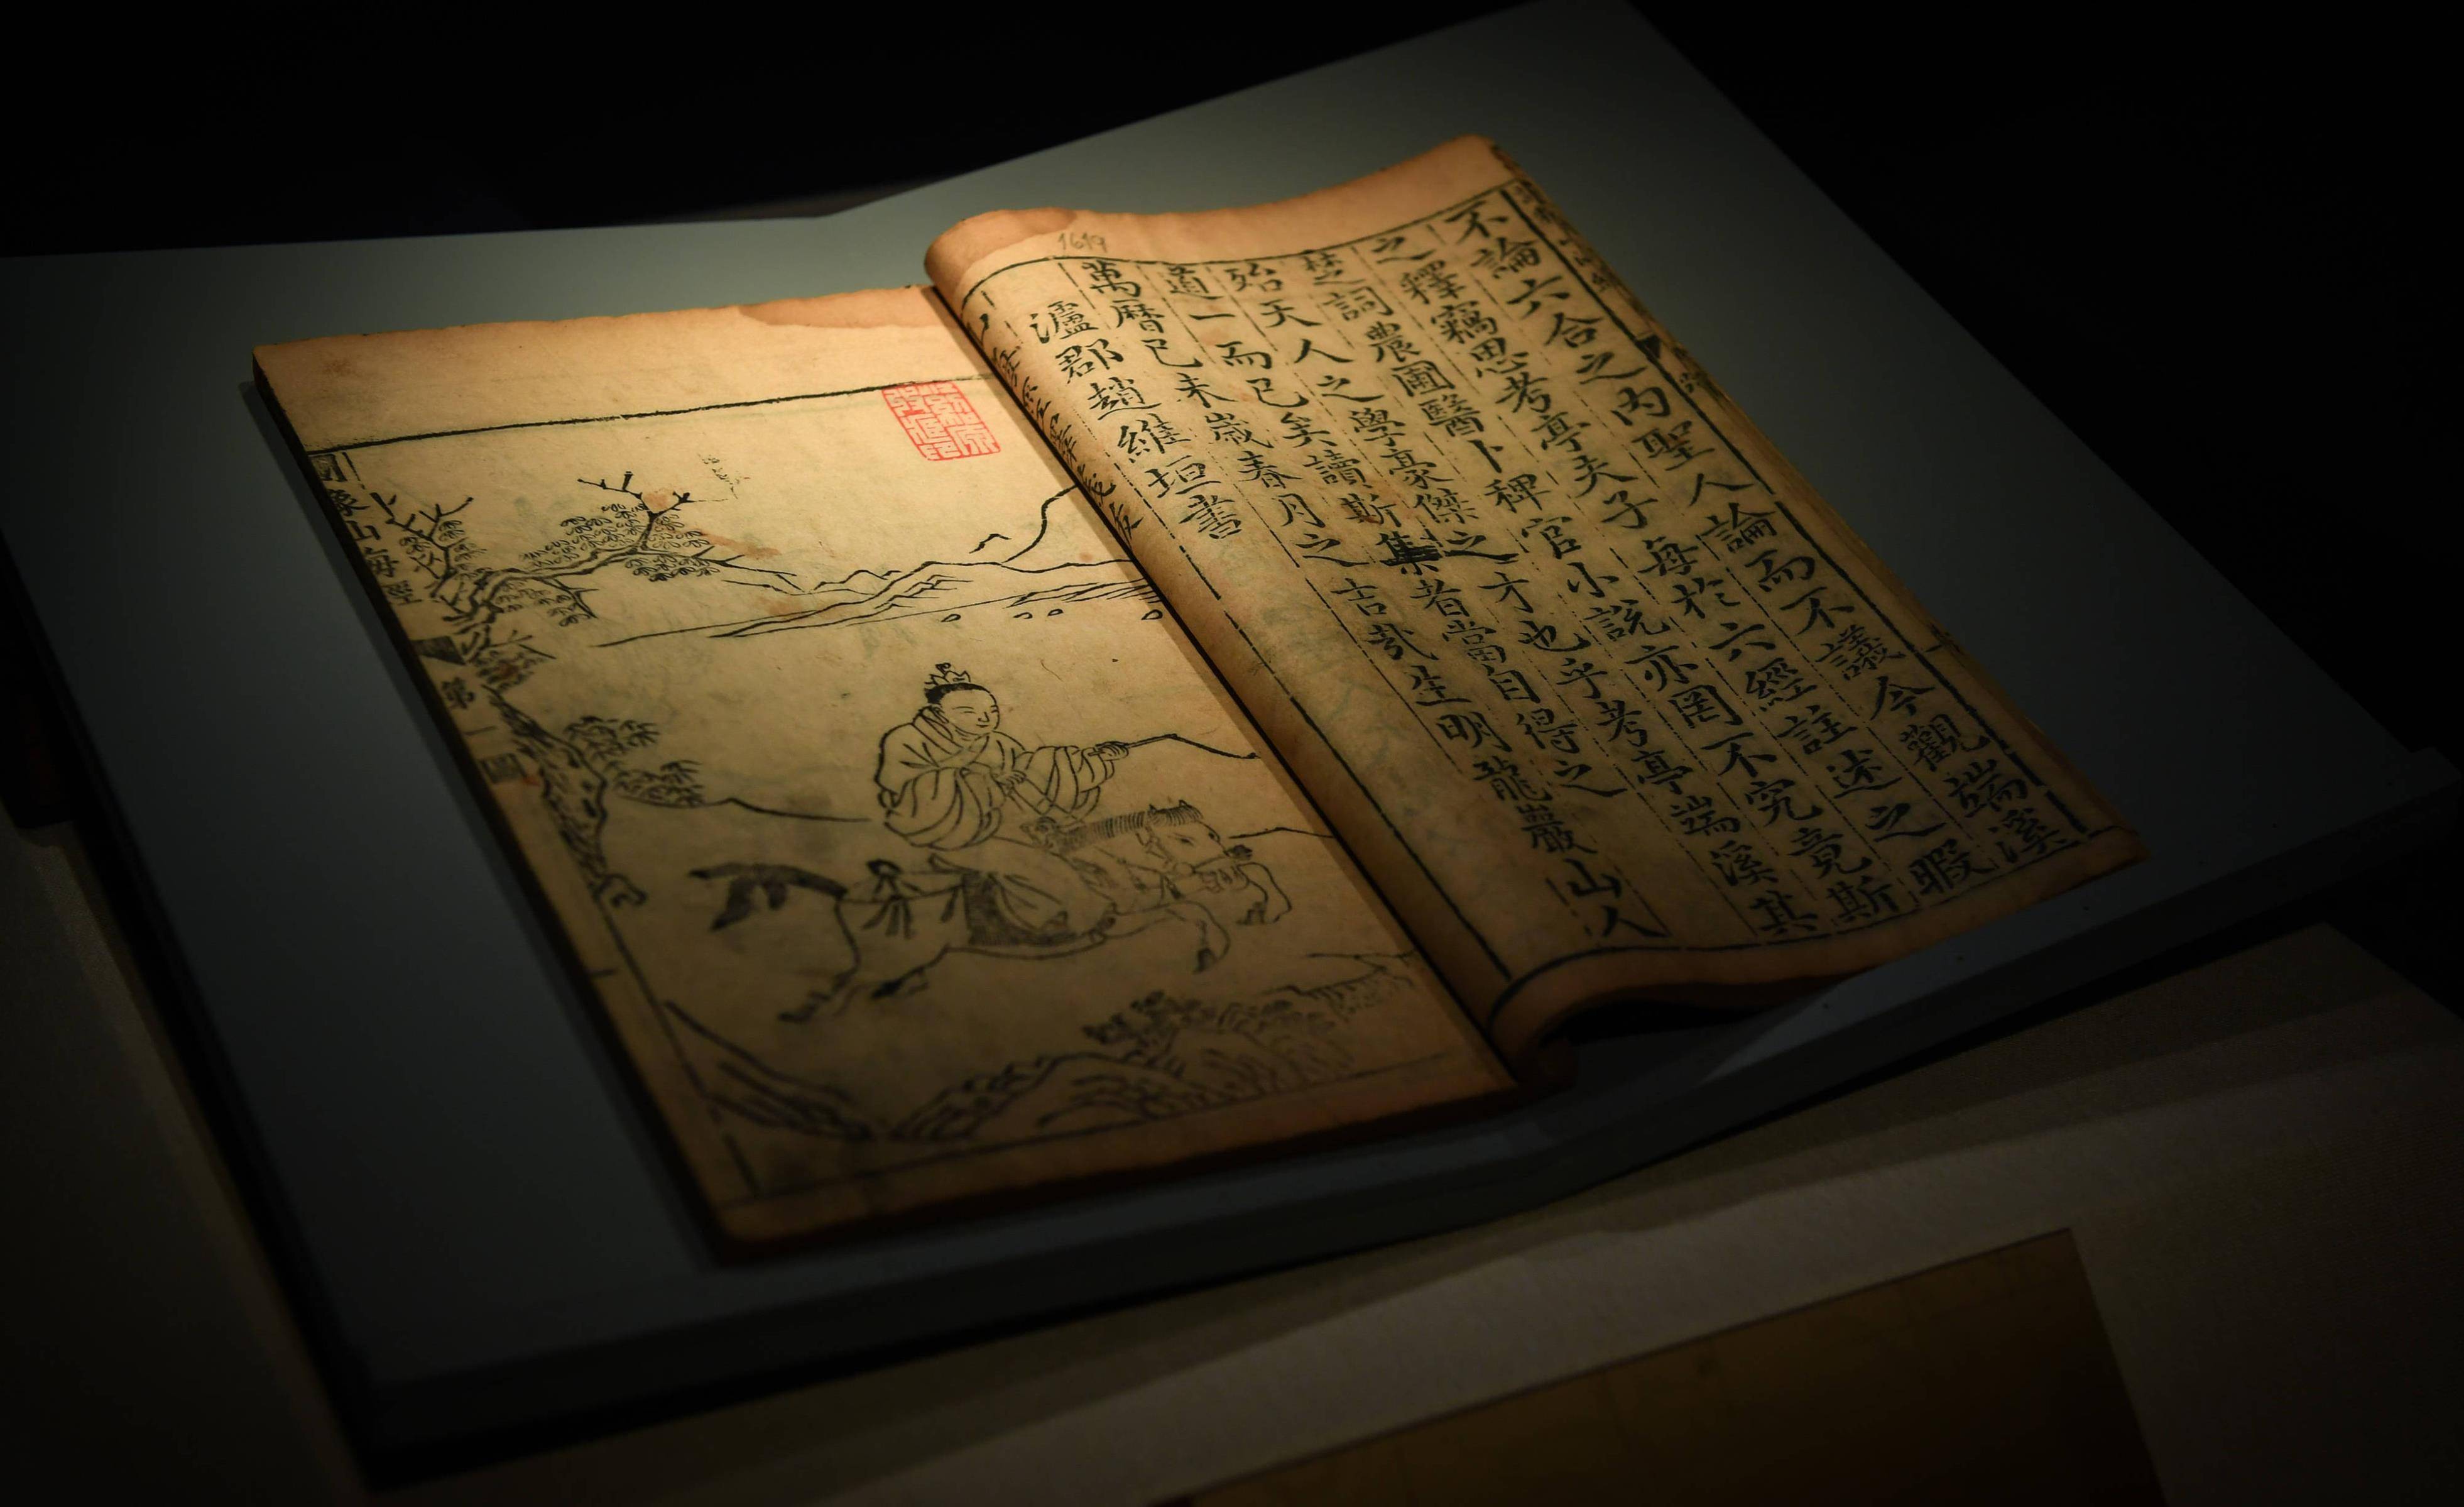 1619
不論六合之內聖人論而不議今觀端溪
之釋竊思考亭夫子每於六經註述之暇
楚詞農圃醫卜稗官小說亦罔不究竟斯
殆天人之學豪傑之才也乎考亭端溪其
道一而已矣讀斯集者當自得之
萬曆己未歲春月之吉哉生明龍巖山人
瀘郡趙維垣書
圖象山海經
第一圖